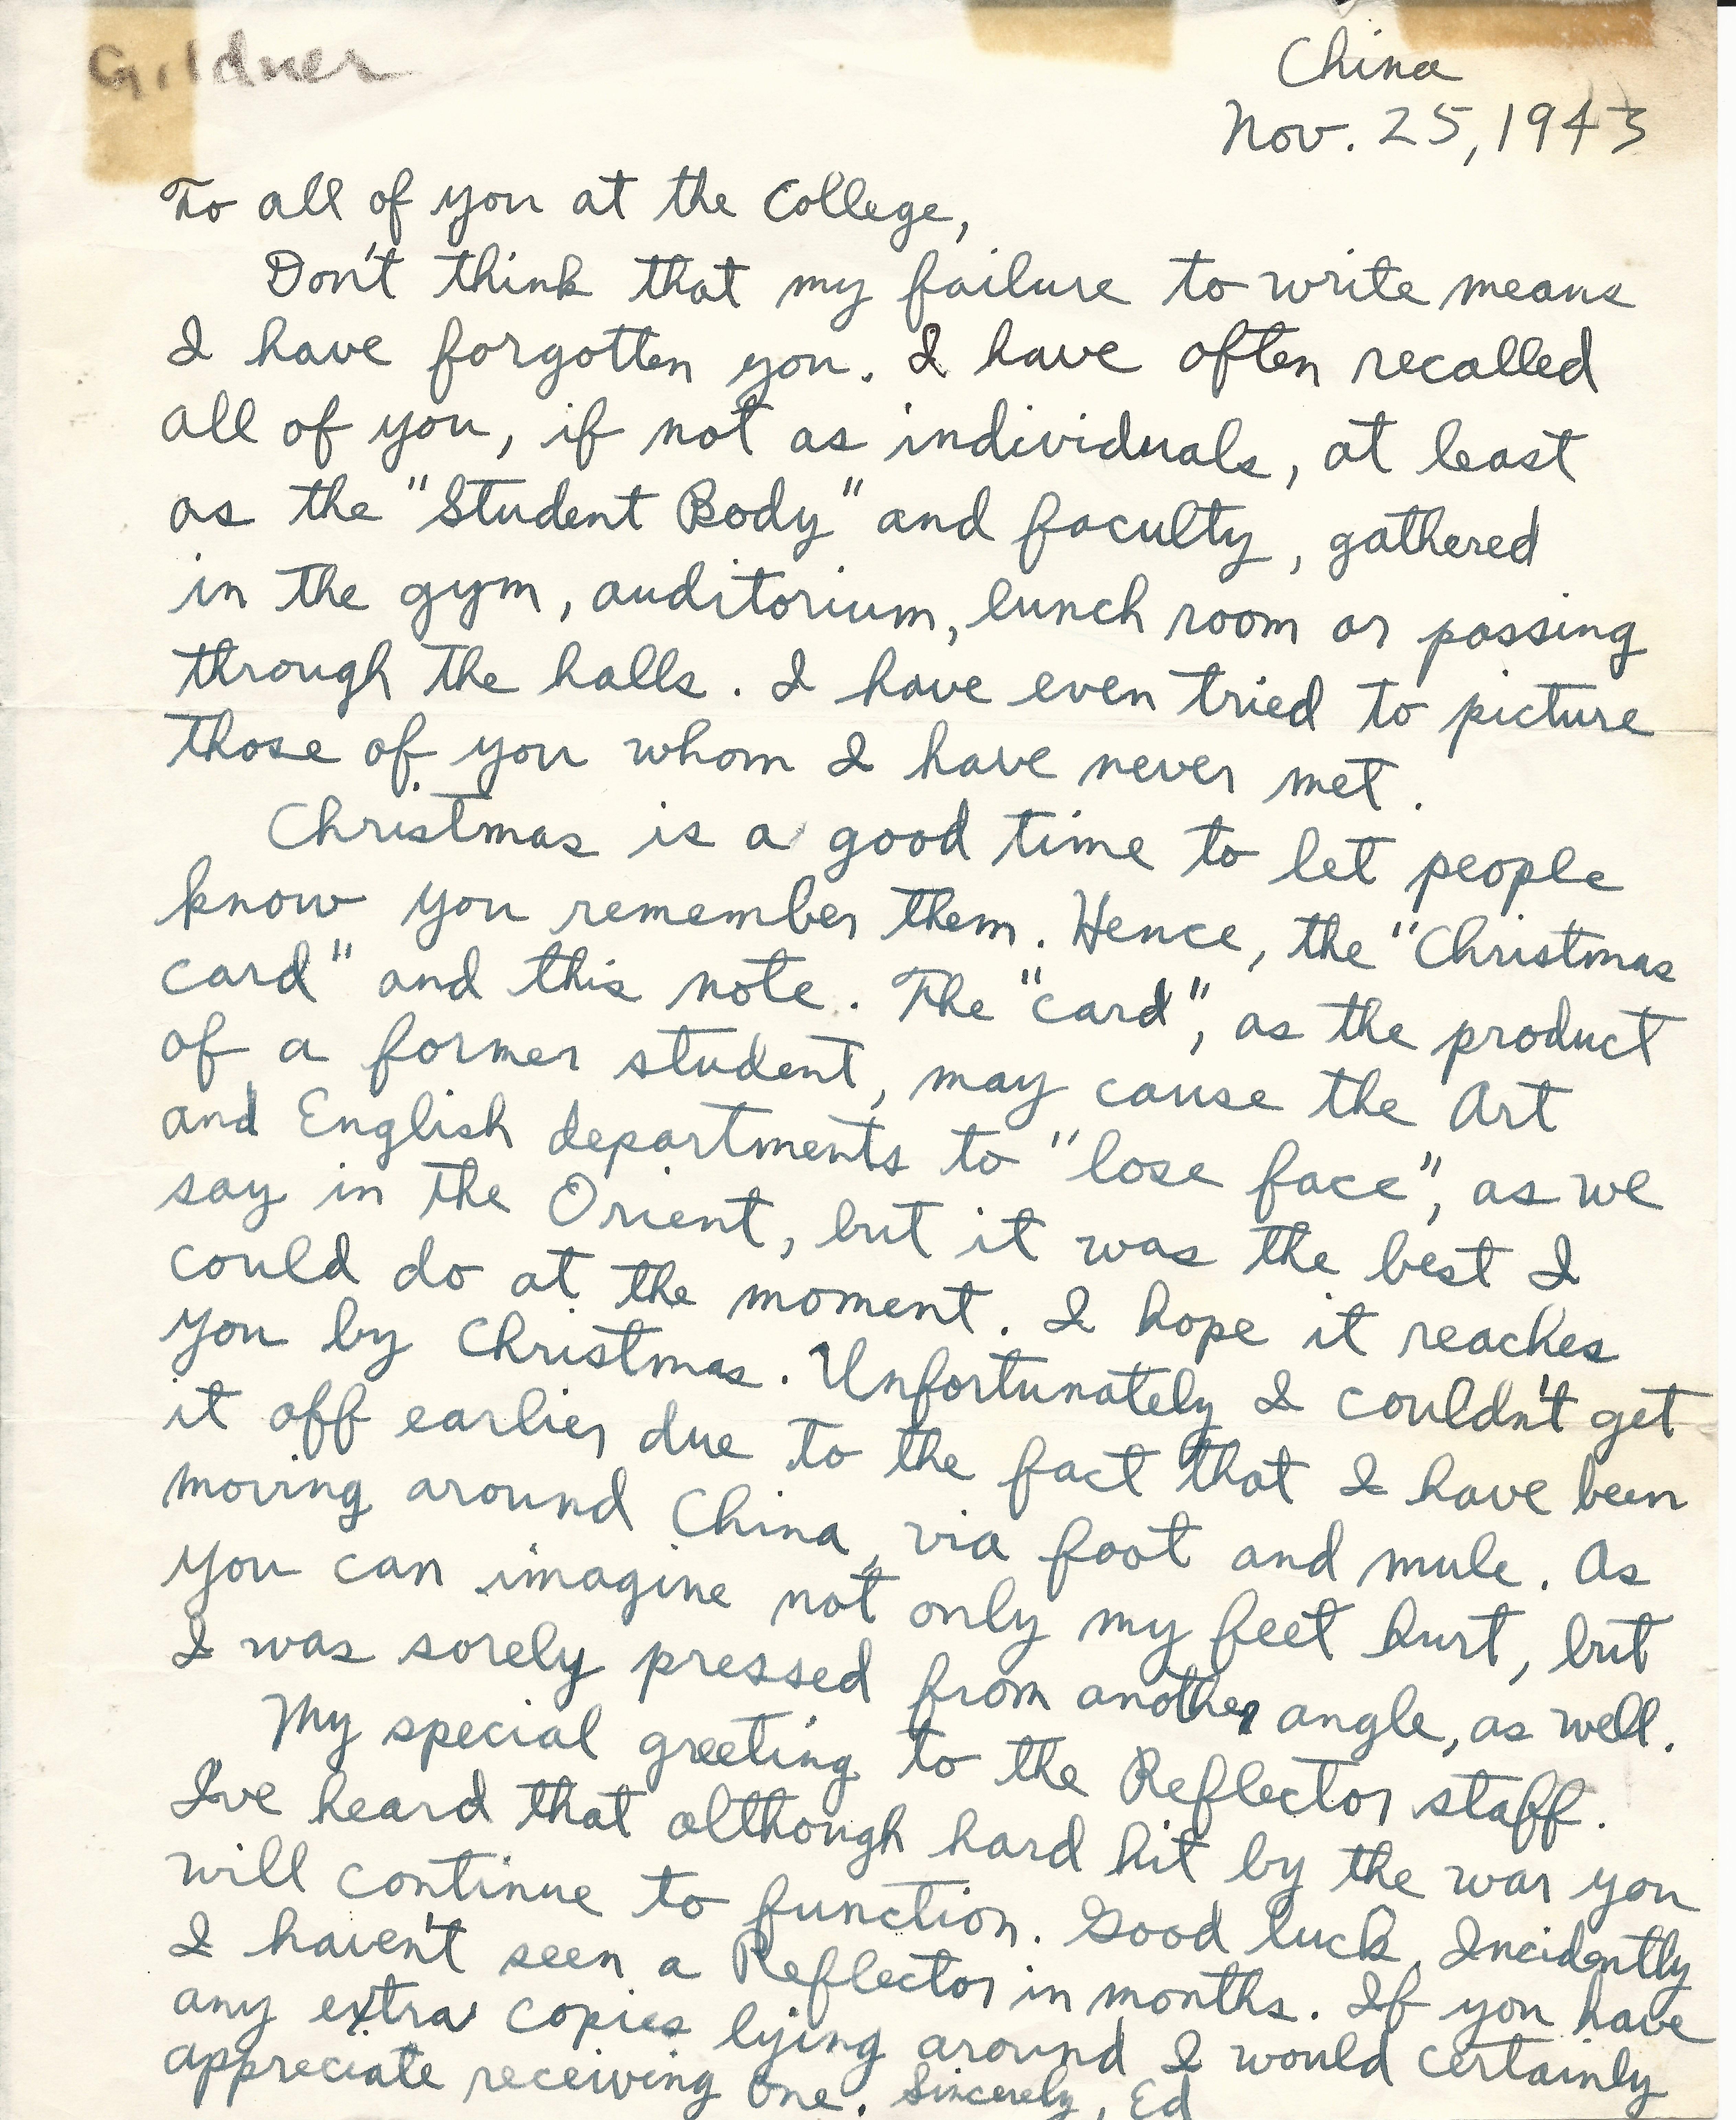 Gildner
China
Nov. 25, 1943
To all of you at the College,
Don't think that my failure to write means
I have forgotten you. I have often recalled
all of you, if not as individuals, at least
as the "Student Body" and faculty, gathered
in the gym, auditorium, lunch room or passing
through the halls. I have even tried to picture
those of you whom I have never met.
Christmas is a good time to let people
know you remember them. Hence, the "Christmas
card" and this note. The "card", as the product
of a former student, may cause the Art
and English departments to "lose face", as we
say in the Orient, but it was the best I
could do at the moment. I hope it reaches
you by Christmas. Unfortunately I couldn't get
it off earlier due to the fact that I have been
moving around China, via foot and mule. As
you can imagine not only my feet hurt, but
I was sorely pressed from another angle, as well.
My special greeting to the Reflector staff.
I've heard that although hard hit by the war you
will continue to function. Good luck. Incidently
I haven't seen a Reflector in months. If you have
any extra copies lying around I would certainly
appreciate receiving one. Sincerely, Ed